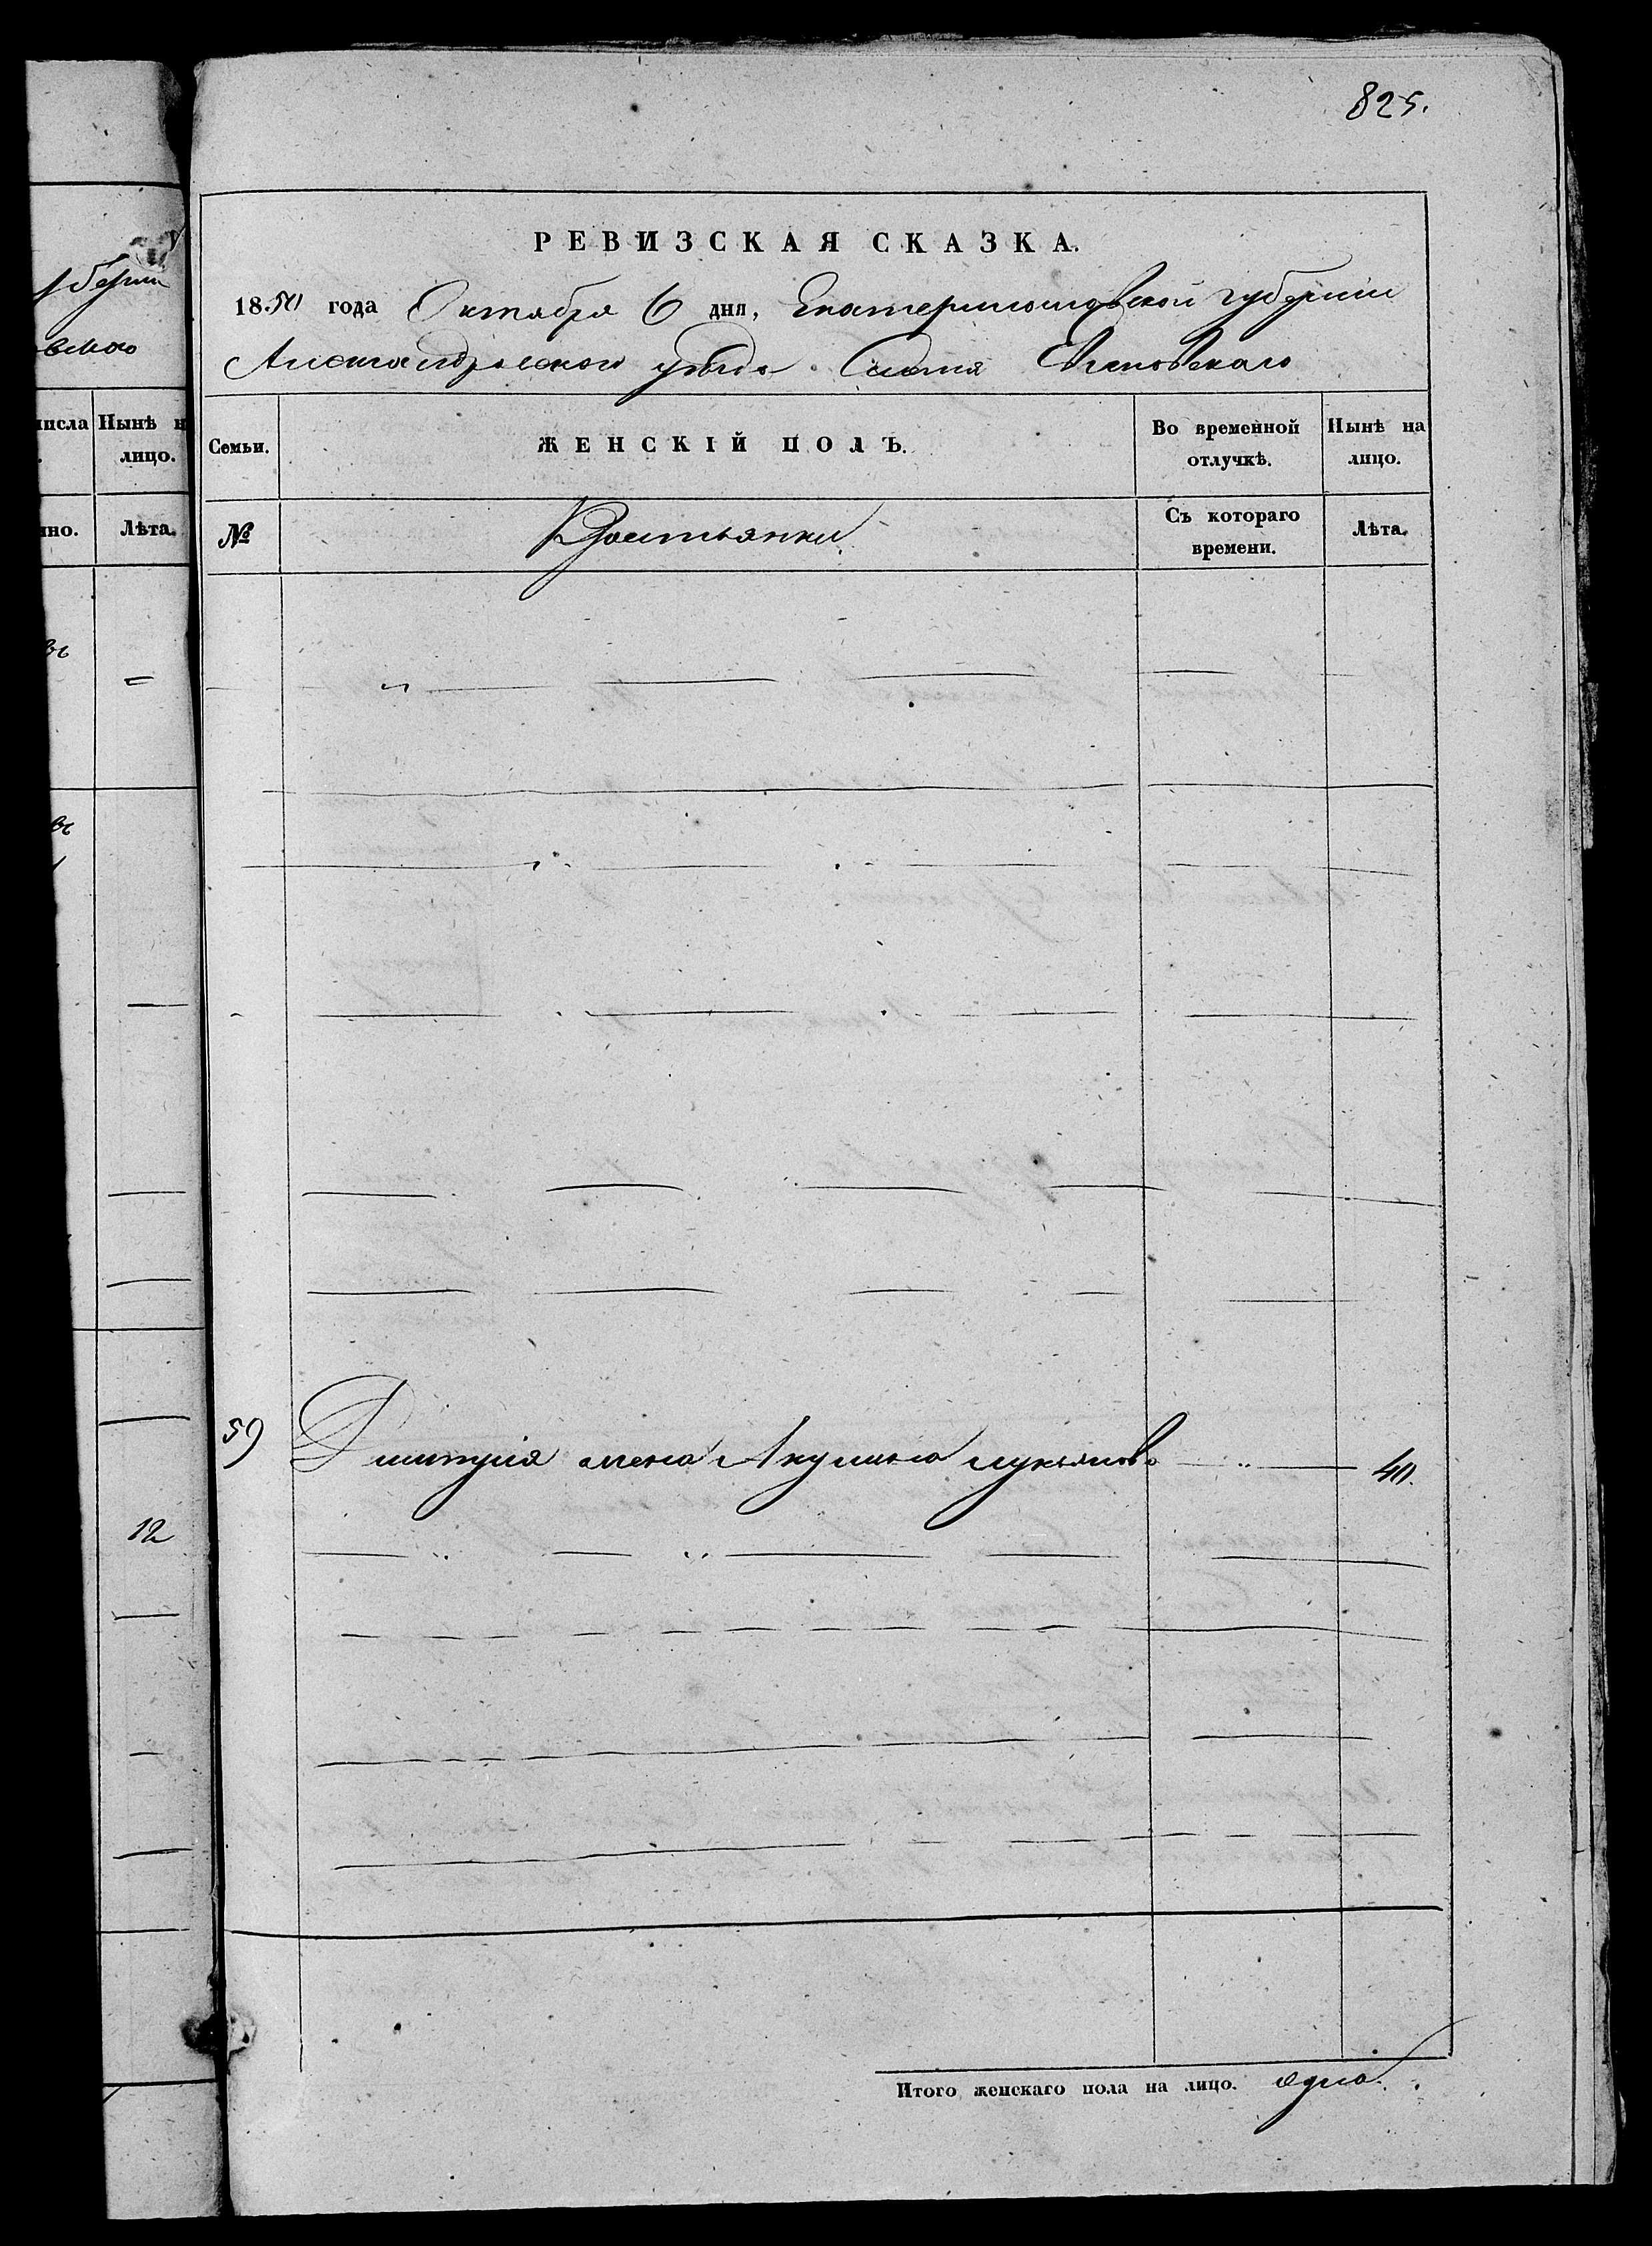 825.
РЕВИЗСКАЯ СКАЗКА.
1850 года Октября 6 дня, Екатеринославской губернии
Александровского уезда Селения
Семьи. ЖЕНСКІЙ ПОЛЪ. Во временной отлучкѣ. Нынѣ на лицо.
№ Крестьянки Съ котораго времени. Лѣта.
59 Димитрія жена Акулина лукьянова 40.
Итого женскаго пола на лицо. одна.
уберніи
вского
числа Нынѣ н
лицо.
нно. Лѣта.
12